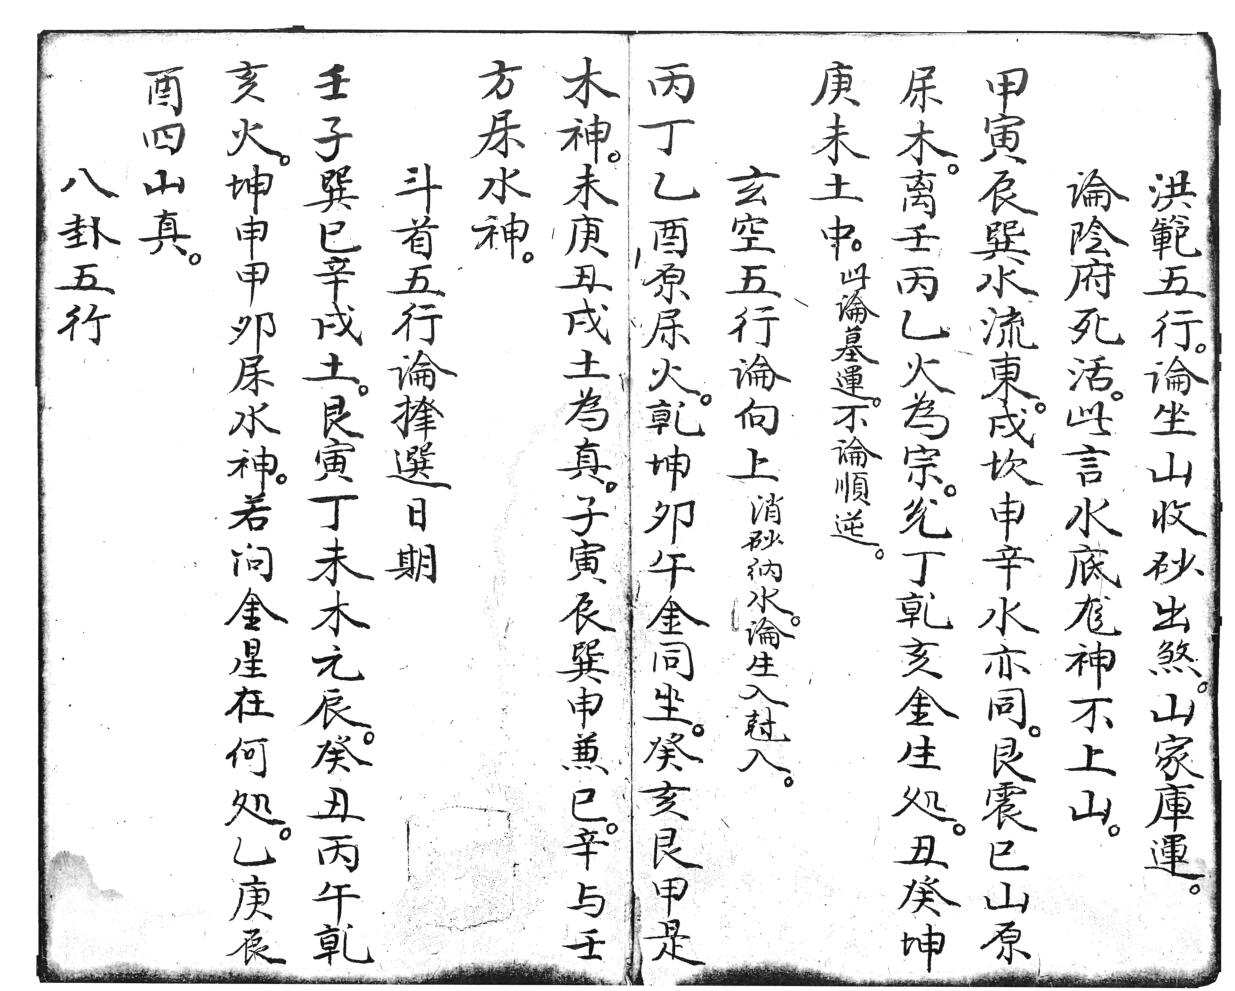 洪範五行。論坐山收砂出煞。山家庫運。
論陰府死活。此言水底尨神不上山。
甲寅辰巽水流東。戌坎申辛水亦同。艮震巳山原
屎木。离壬丙乙火為宗。兊丁乹亥金生处。丑癸坤
庚未土中。此論墓運。不論順逆。
玄空五行論向上 消砂納水。論生入尅入。
丙丁乙酉原屎火。乹坤卯午金同坐。癸亥艮甲是
木神。未庚丑戌土為真。子寅辰巽申兼巳。辛与壬
方屎水神。
斗首五行論擇選日期
壬子巽巳辛戌土。艮寅丁未木元辰。癸丑丙午乹
亥火。坤申甲卯屎水神。若问金星在何处。乙庚辰
酉四山真。
八卦五行